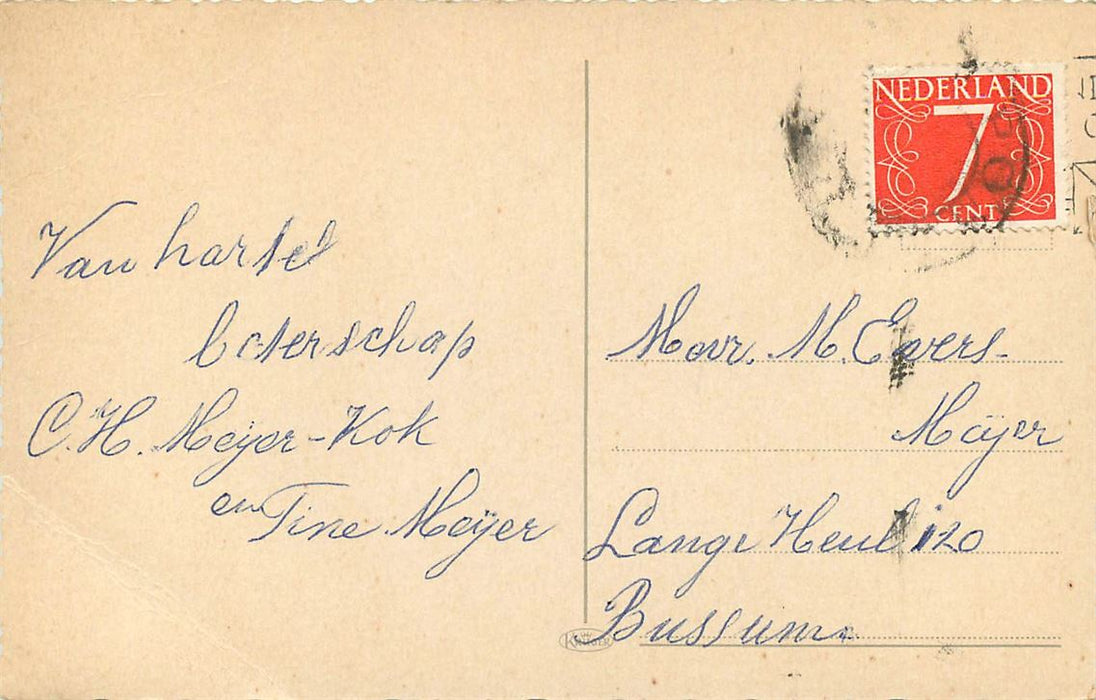 Van harte
beterschap
C.H. Meyer-Kok
en Tine Meyer
NEDERLAND
7
CENT
Mevr. M. Evers-
Meyer
Lange Heul 120
Bussum.
KRÜGER